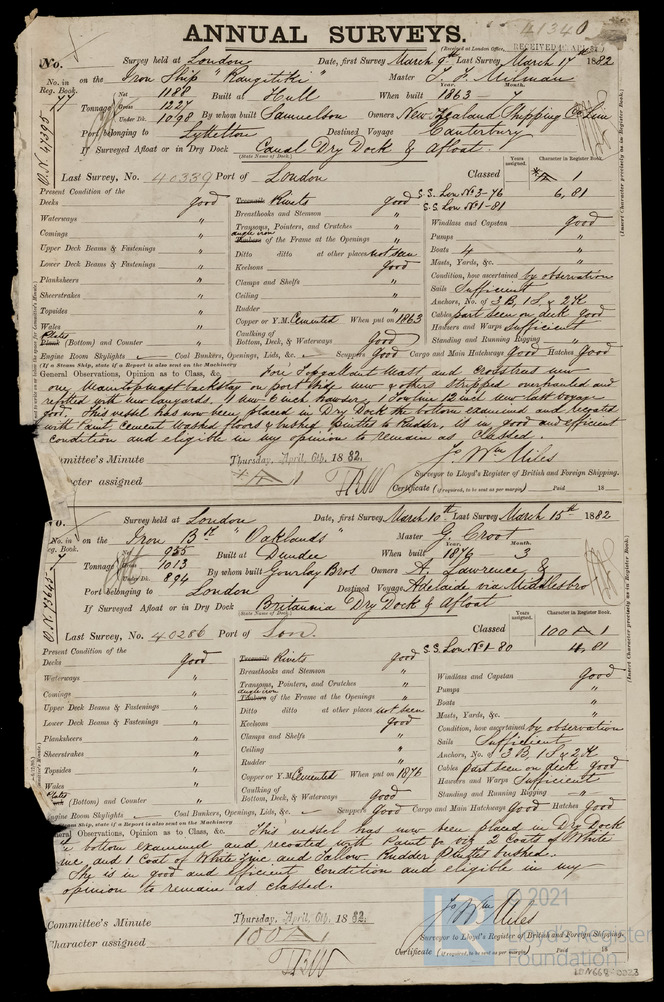 41340
ANNUAL SURVEYS.
(Received at London Office, RECEIVED 18 APL 82)
No. Survey held at London Date, first Survey March 9th Last Survey March 17th 1882
No. in Reg. Book. 77 on the Iron Ship "Rangitiki" Master J. F. Milman
Tonnage Net 1188 Built at Hull When built Year. 1863 Month. —
Gross 1227
Under Dk. 1098 By whom built Samuelson Owners New Zealand Shipping Co. Lim
Port belonging to Lyttelton Destined Voyage Canterbury
If Surveyed Afloat or in Dry Dock Canal Dry Dock & Afloat
(State Name of Dock.)
O.N. 47295
Last Survey, No. 40339 Port of London Classed Years assigned. Character in Register Book. A 1
S.S. Lon. No 3-76 6,81
S.S. Lon No 1-81
(Insert Character precisely as in Register Book.)
Present Condition of the
Decks good
Waterways "
Comings "
Upper Deck Beams & Fastenings "
Lower Deck Beams & Fastenings "
Planksheers "
Sheerstrakes "
Topsides "
Wales "
Plates (Bottom) and Counter "
Treenails Rivets good
Breasthooks and Stemson "
Transoms, Pointers, and Crutches "
angle iron Timbers of the Frame at the Openings "
Ditto ditto at other places not seen
Keelsons good
Clamps and Shelfs "
Ceiling "
Rudder "
Copper or Y.M. Cemented When put on 1863
Caulking of Bottom, Deck, & Waterways Good
Windlass and Capstan good
Pumps "
Boats 4 "
Masts, Yards, &c. "
Condition, how ascertained by observation
Sails Sufficient
Anchors, No. of 3 B, 1 S & 2 K
Cables part seen on deck good
Hawsers and Warps Sufficient
Standing and Running Rigging "
Engine Room Skylights — Coal Bunkers, Openings, Lids, &c. — Scuppers Good Cargo and Main Hatchways Good Hatches Good
(If a Steam Ship, state if a Report is also sent on the Machinery
General Observations, Opinion as to Class, &c. Fore Topgallant Mast and Crosstrees new
one Maintopmast backstay on port side new & others stripped overhauled and
refitted with new lanyards. 1 new 6 inch hawser, 1 Towline 12 inch new last voyage
good. This vessel has now been placed in Dry Dock the bottom examined and recoated
with Paint, Cement washed floors & bushed pintles to Rudder, is in good and efficient
condition and eligible in my opinion to remain as Classed.
Committee's Minute Thursday, April, 6th, 1882. Jo Wm Miles
Character assigned A 1 Surveyor to Lloyd's Register of British and Foreign Shipping.
Certificate (if required, to be sent as per margin) Paid 18
No. Survey held at London Date, first Survey March 10th Last Survey March 15th 1882
No. in Reg. Book. 7 on the Iron Bk "Oaklands" Master G. Croot
Tonnage Net 955 Built at Dundee When built Year. 1876 Month. 3
Gross 1013
Under Dk. 894 By whom built Gourlay Bros Owners A. Lawrence &
Port belonging to London Destined Voyage Adelaide via Middlesbro
If Surveyed Afloat or in Dry Dock Britannia Dry Dock & Afloat
(State Name of Dock.)
O.N. 73645
Last Survey, No. 40286 Port of Lon. Classed Years assigned. Character in Register Book. 100 A 1
S.S. Lon. No 1-80 4,81
(Insert Character precisely as in Register Book.)
Present Condition of the
Decks good
Waterways "
Comings "
Upper Deck Beams & Fastenings "
Lower Deck Beams & Fastenings "
Planksheers "
Sheerstrakes "
Topsides "
Wales "
Plates (Bottom) and Counter "
Treenails Rivets good
Breasthooks and Stemson "
Transoms, Pointers, and Crutches "
angle iron Timbers of the Frame at the Openings "
Ditto ditto at other places not seen
Keelsons good
Clamps and Shelfs "
Ceiling "
Rudder "
Copper or Y.M. Cemented When put on 1876
Caulking of Bottom, Deck, & Waterways Good
Windlass and Capstan good
Pumps "
Boats "
Masts, Yards, &c. "
Condition, how ascertained by observation
Sails Sufficient
Anchors, No. of 3 B, 1 S & 2 K
Cables part seen on deck good
Hawsers and Warps Sufficient
Standing and Running Rigging "
Engine Room Skylights — Coal Bunkers, Openings, Lids, &c. — Scuppers Good Cargo and Main Hatchways Good Hatches Good
Ship, state if a Report is also sent on the Machinery
General Observations, Opinion as to Class, &c. This vessel has now been placed in Dry Dock
bottom examined and recoated with Paint viz 2 Coats of White
Zinc, and 1 Coat of White Zinc and Tallow Rudder Pintles bushed.
She is in good and efficient condition and eligible in my
opinion to remain as classed.
Committee's Minute Thursday, April, 6th, 1882. Jo Wm Miles
Character assigned 100 A 1 Surveyor to Lloyd's Register of British and Foreign Shipping.
Certificate (if required, to be sent as per margin) Paid 18
© 2021
Lloyd's Register
Foundation
LDN668-0023